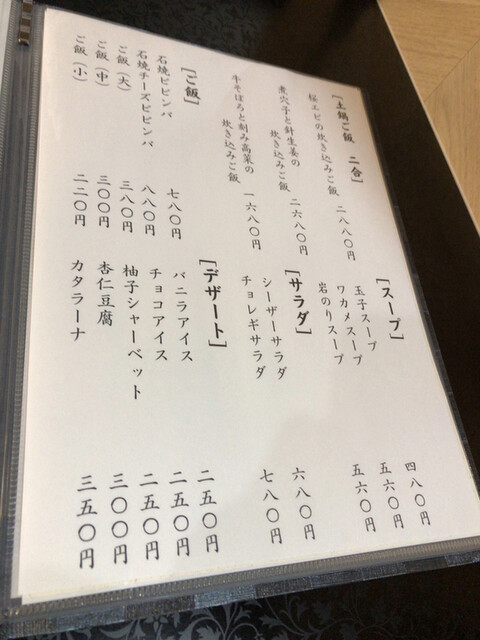 【土鍋ご飯 二合】
桜エビの炊き込みご飯 二八八〇円
煮穴子と針生姜の
炊き込みご飯 二六八〇円
牛そぼろと刻み高菜の
炊き込みご飯 一六八〇円
【ご飯】
石焼ビビンバ 七八〇円
石焼チーズビビンバ 八八〇円
ご飯（大） 三八〇円
ご飯（中） 三〇〇円
ご飯（小） 二二〇円
【スープ】
玉子スープ 四八〇円
ワカメスープ 五六〇円
岩のりスープ 五六〇円
【サラダ】
シーザーサラダ 六八〇円
チョレギサラダ 七八〇円
【デザート】
バニラアイス 二五〇円
チョコアイス 二五〇円
柚子シャーベット 二五〇円
杏仁豆腐 三〇〇円
カタラーナ 三五〇円